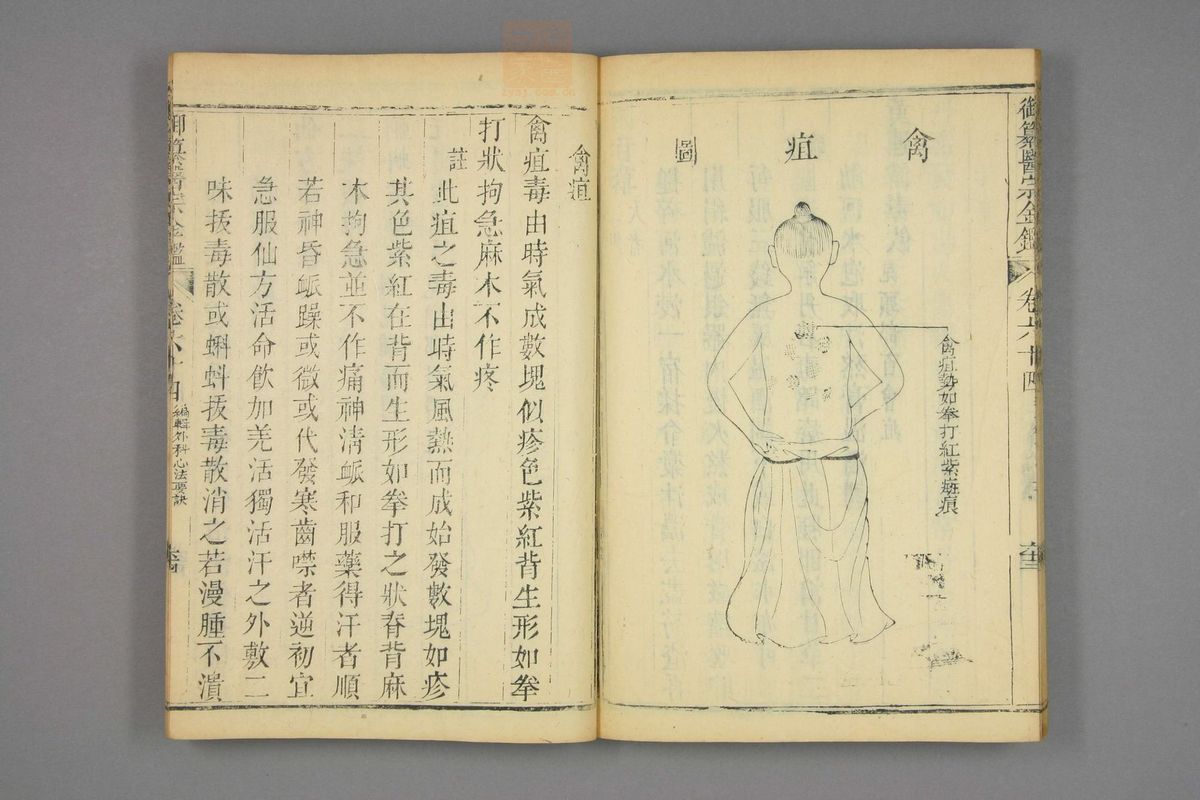 御纂醫宗金鑑 卷六十四
禽疽圖
禽疽勢如拳打紅紫斑痕
禽疽
禽疽毒由時氣成數塊似疹色紫紅背生形如拳
打狀拘急麻木不作疼
註
此疽之毒由時氣風熱而成始發數塊如疹
其色紫紅在背而生形如拳打之狀脊背麻
木拘急並不作痛神清脈和服藥得汗者順
若神昏脈躁或微或代發寒齒噤者逆初宜
急服仙方活命飲加羌活獨活汗之外敷二
味拔毒散或蝌蚪拔毒散消之若漫腫不潰
御纂醫宗金鑑 卷六十四 編輯外科心法要訣